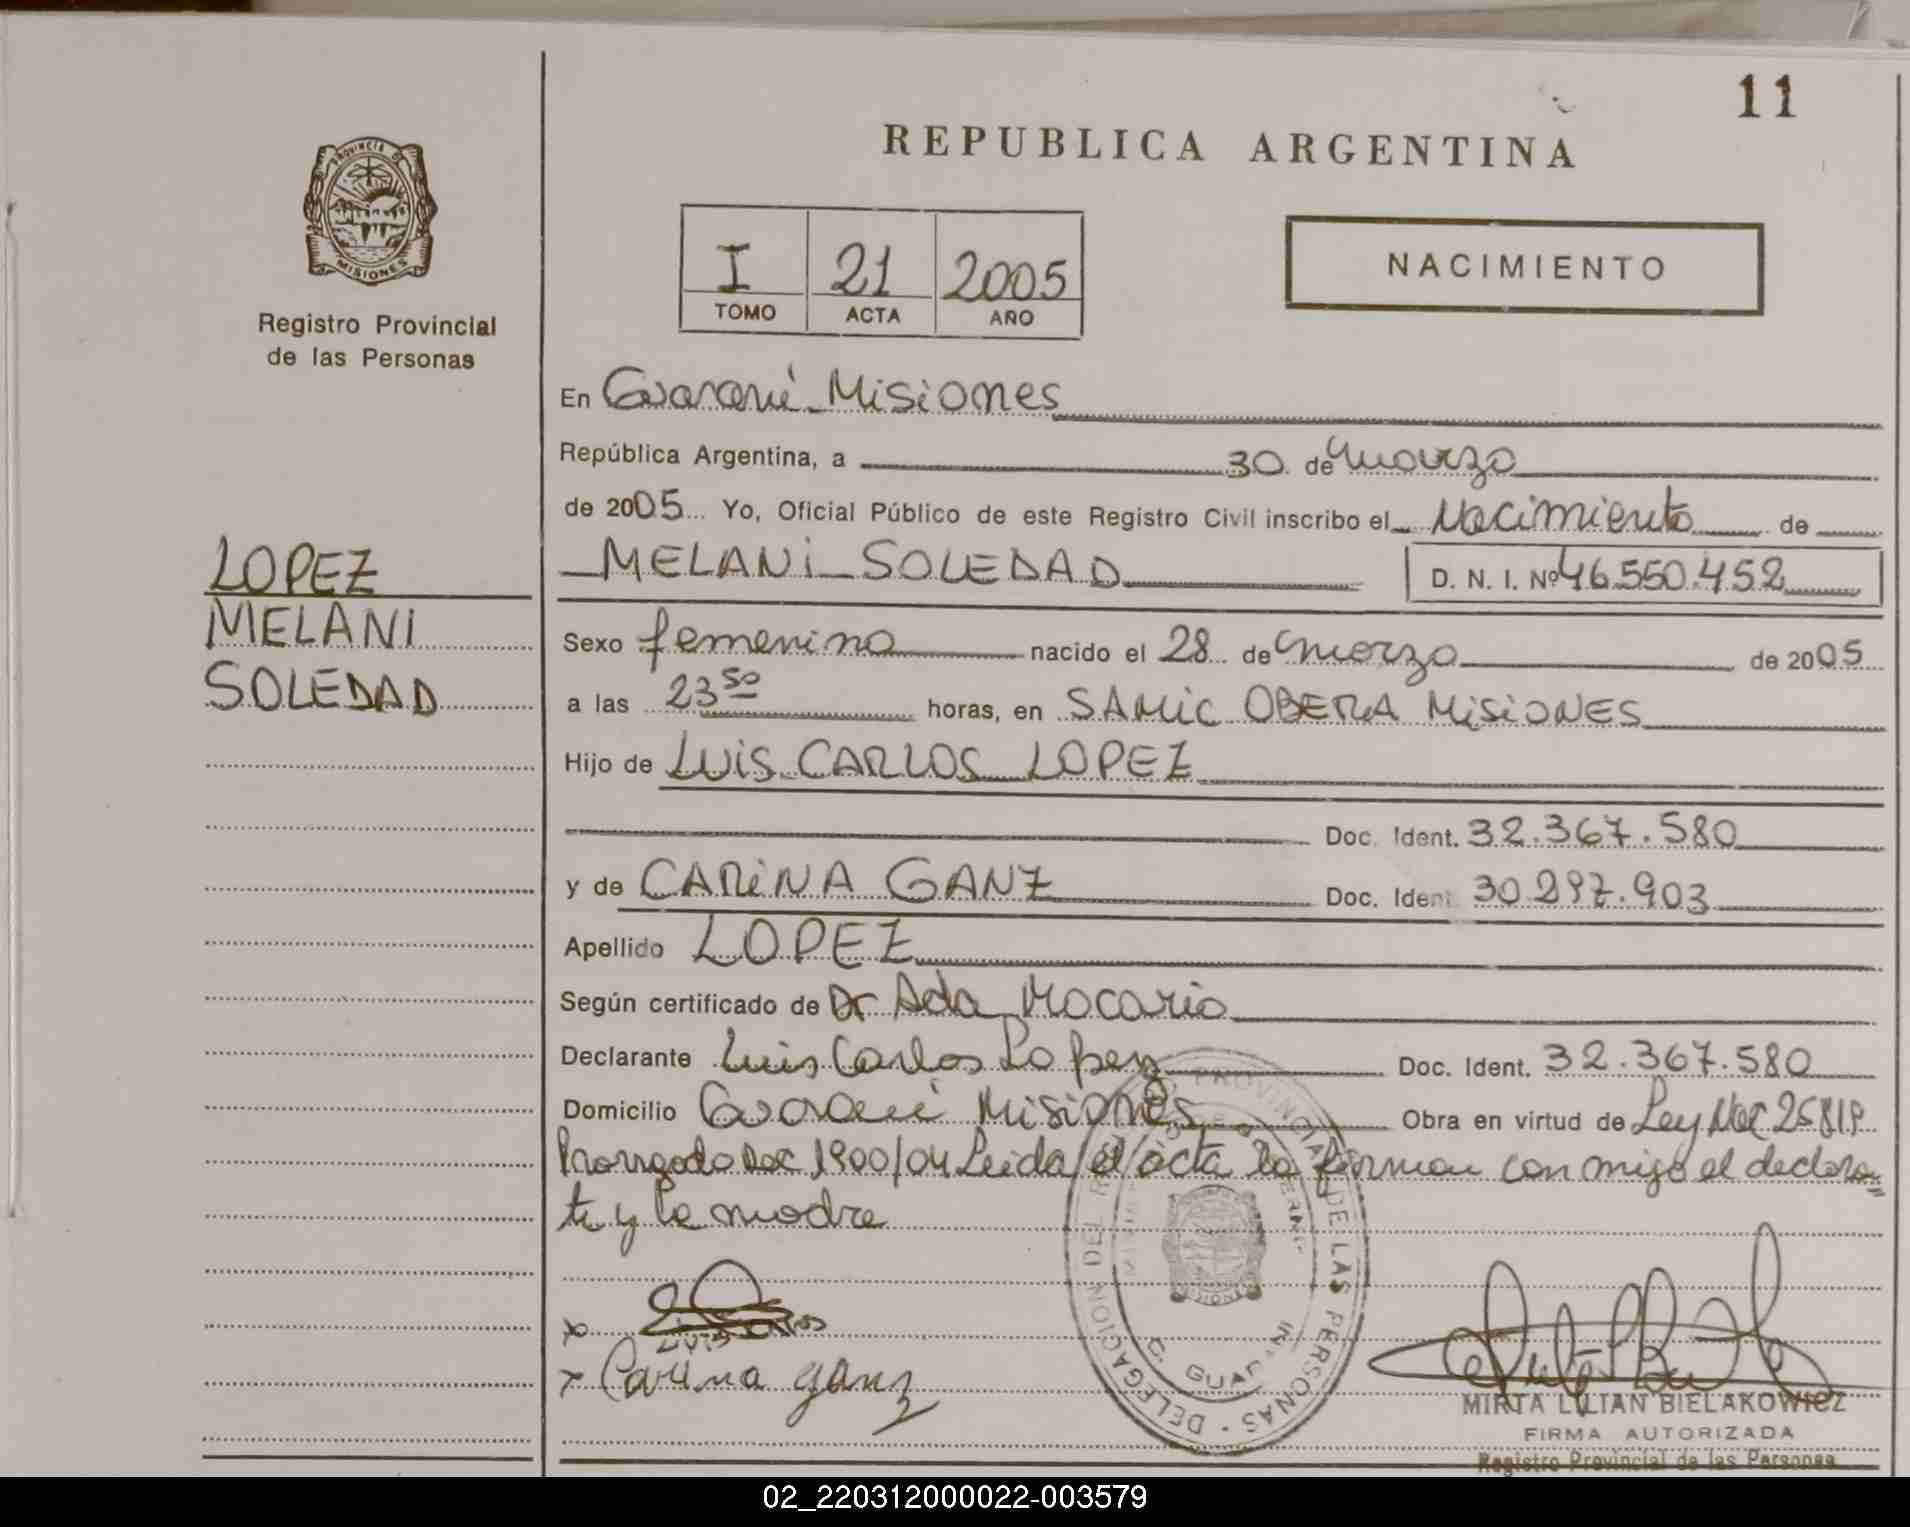 11
REPUBLICA ARGENTINA
PROVINCIA DE
MISIONES
Registro Provincial
de las Personas
I 21 2005
TOMO ACTA AÑO
NACIMIENTO
En Guaraní - Misiones
República Argentina, a 30 de marzo
de 2005 Yo, Oficial Público de este Registro Civil inscribo el Nacimiento de
MELANI SOLEDAD D. N. I. Nº 46.550.452
LOPEZ
MELANI
SOLEDAD
Sexo femenino nacido el 28 de marzo de 2005
a las 23 50 horas, en SAMIC OBERA MISIONES
Hijo de LUIS CARLOS LOPEZ
Doc. Ident. 32.367.580
y de CARINA GANZ Doc. Ident. 30.297.903
Apellido LOPEZ
Según certificado de Dr Ada
Declarante Luis Carlos Lopez Doc. Ident. 32.367.580
Domicilio Guaraní Misiones Obra en virtud de Ley Nac 25819
Prorrogado Dec 1900/04 Leida el acta la firman con migo el declaran
te y la madre
DELEGACION DEL REGISTRO PROVINCIAL DE LAS PERSONAS
x
x Carina ganz
MIRTA LILIAN BIELAKOWICZ
FIRMA AUTORIZADA
Registro Provincial de las Personas
02_220312000022-003579